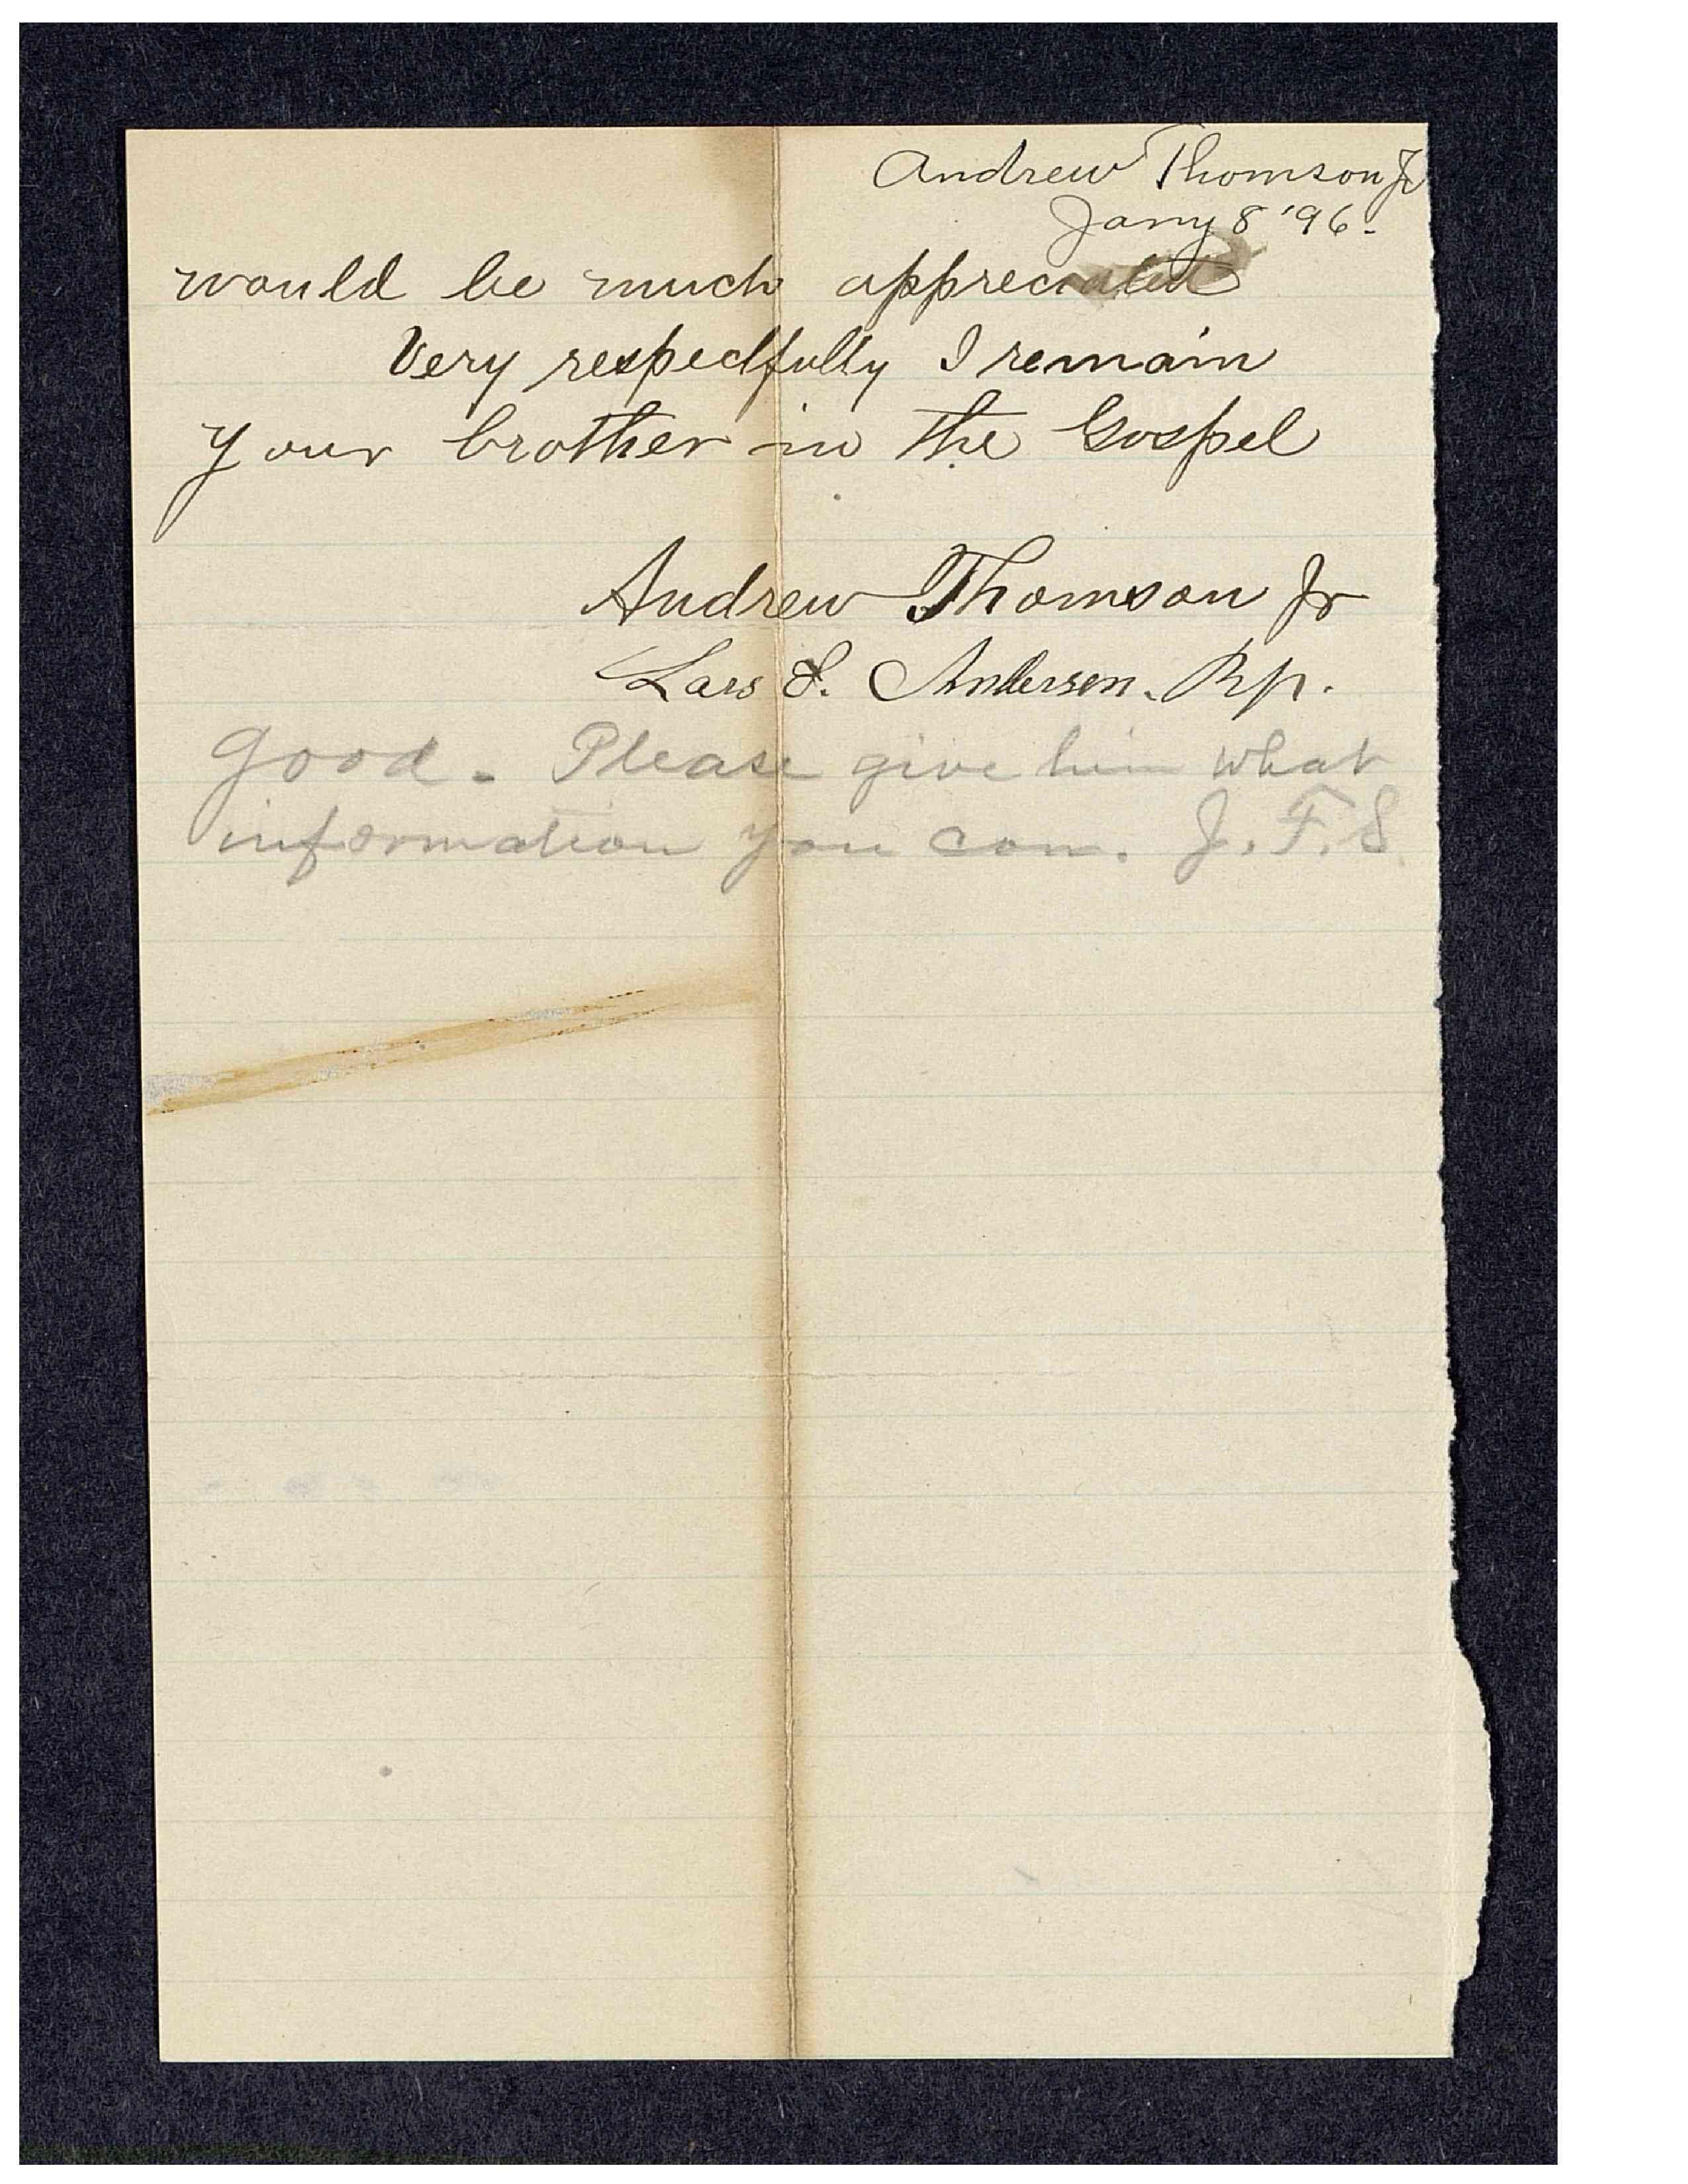 Andrew Thomson Jr
Jany 8 '96.
would be much appreciated
Very respectfully I remain
Your brother in the Gospel
Andrew Thomson Jr
Lars S. Andersen. Bp.
Good. Please give him what
information you can. J. F. S.